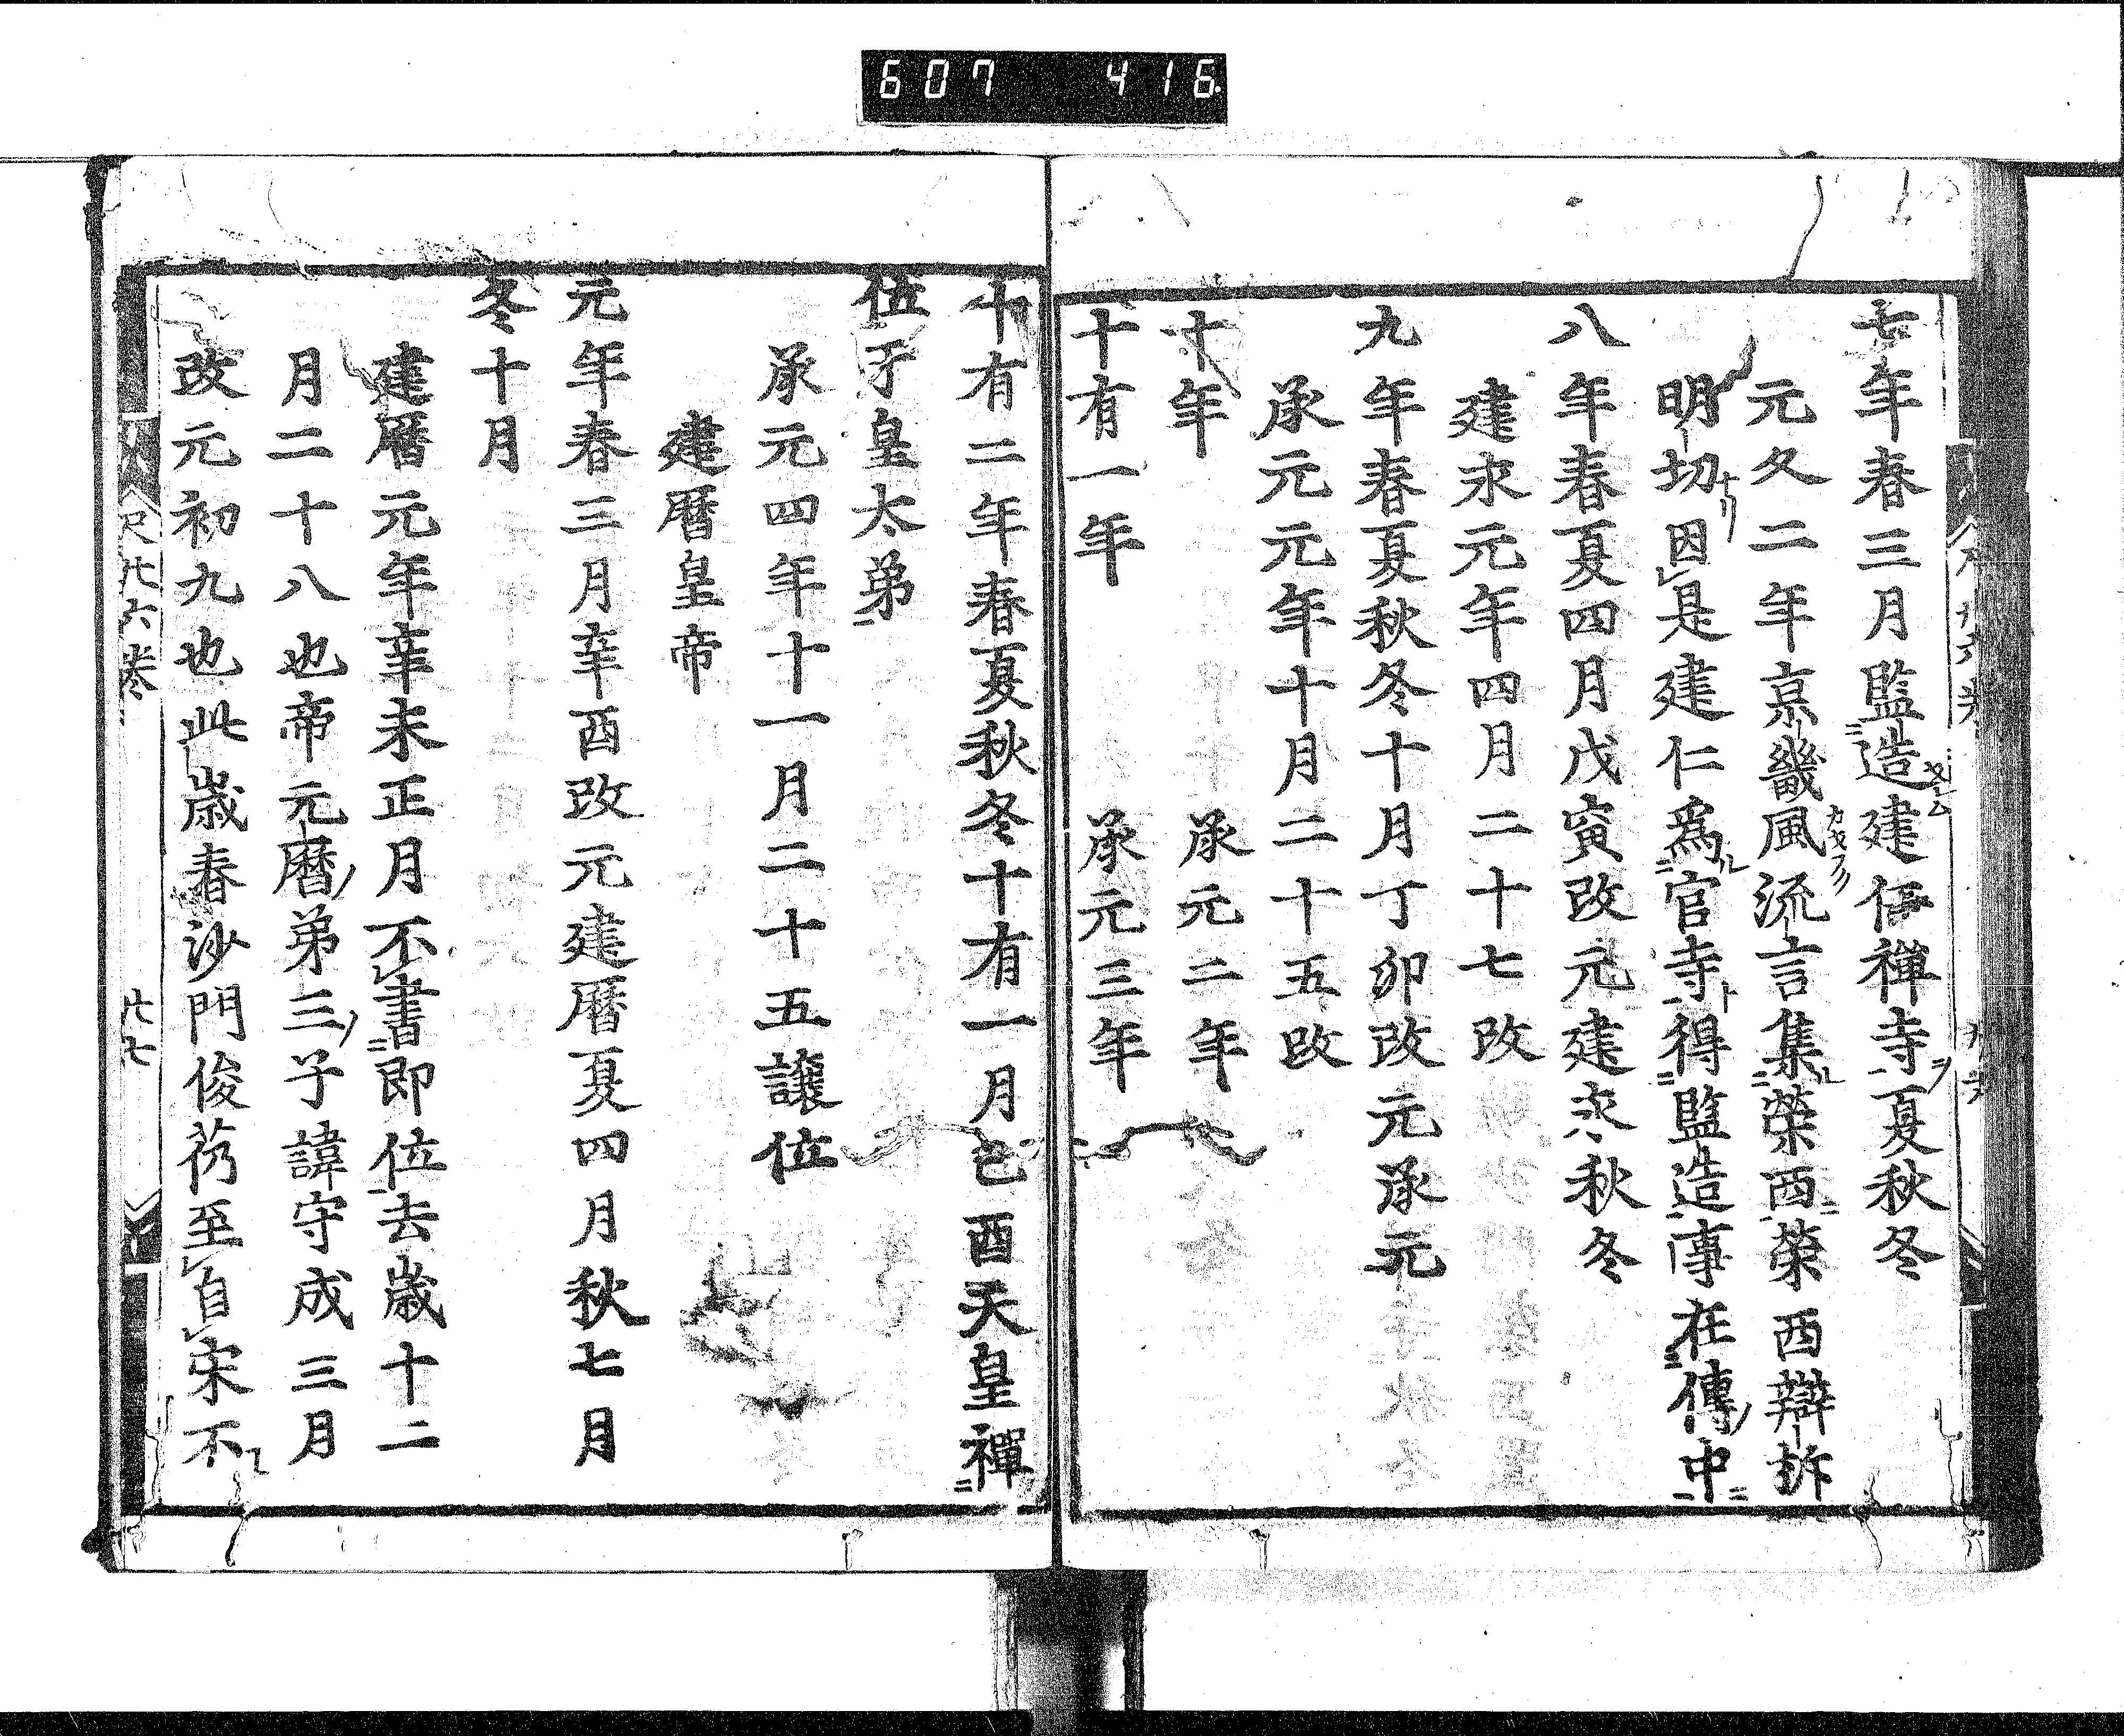 607 416
七年春三月監造建仁禪寺夏秋冬
元久二年京畿風流言集榮西榮西辯析
明切因是建仁爲官寺得監造事在傳中
八年春夏四月戊寅改元建永秋冬
建永元年四月二十七改
九年春夏秋冬十月丁卯改元承元
承元元年十月二十五改
十年 承元二年
十有一年 承元三年
十有二年春夏秋冬十有一月己酉天皇禪
位于皇太弟
承元四年十一月二十五譲位
建曆皇帝
元年春三月辛酉改元建曆夏四月秋七月
冬十月
建曆元年辛未正月不書即位去歳十二
月二十八也帝元曆弟三子諱守成三月
改元初九也此歳春沙門俊芿至自宋不
尺廿六巻
廿七